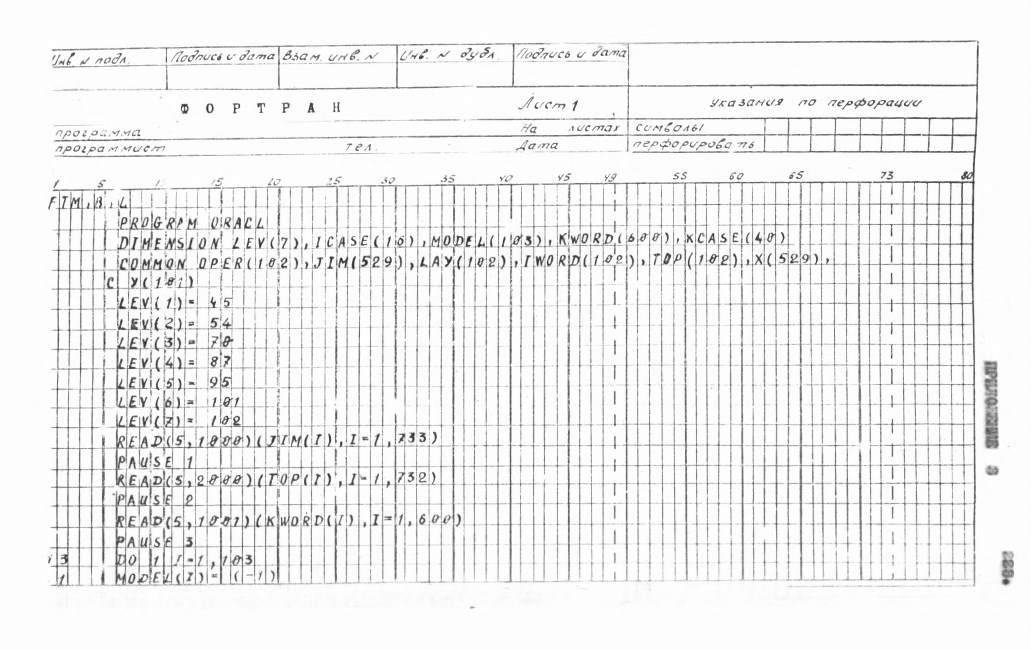 Инв N подл. Подпись и дата Взам. инв. N Инв. N дубл. Подпись и дата
ФОРТРАН Лист 1 указания по перфорации
программа На листах символы
программист тел. Дата перфорировать
1 5 1 15 20 25 30 35 40 45 49 55 60 65 73 80
FTM,B,L
PROGRAM ORACL
DIMENSION LEV(7),ICASE(16),MODEL(103),KWORD(600),KCASE(40)
COMMON OPER(102),JIM(529),LAY(102),IWORD(102),TOP(102),X(529),
C Y(101)
LEV(1)= 45
LEV(2)= 54
LEV(3)= 70
LEV(4)= 87
LEV(5)= 95
LEV(6)= 101
LEV(7)= 102
READ(5,1000)(JIM(I),I=1,733)
PAUSE 1
READ(5,2000)(TOP(I),I=1,732)
PAUSE 2
READ(5,1001)(KWORD(I),I=1,600)
PAUSE 3
3 DO 1 I=1,103
1 MODEL(I)= (-1)
ПРИЛОЖЕНИЕ 3